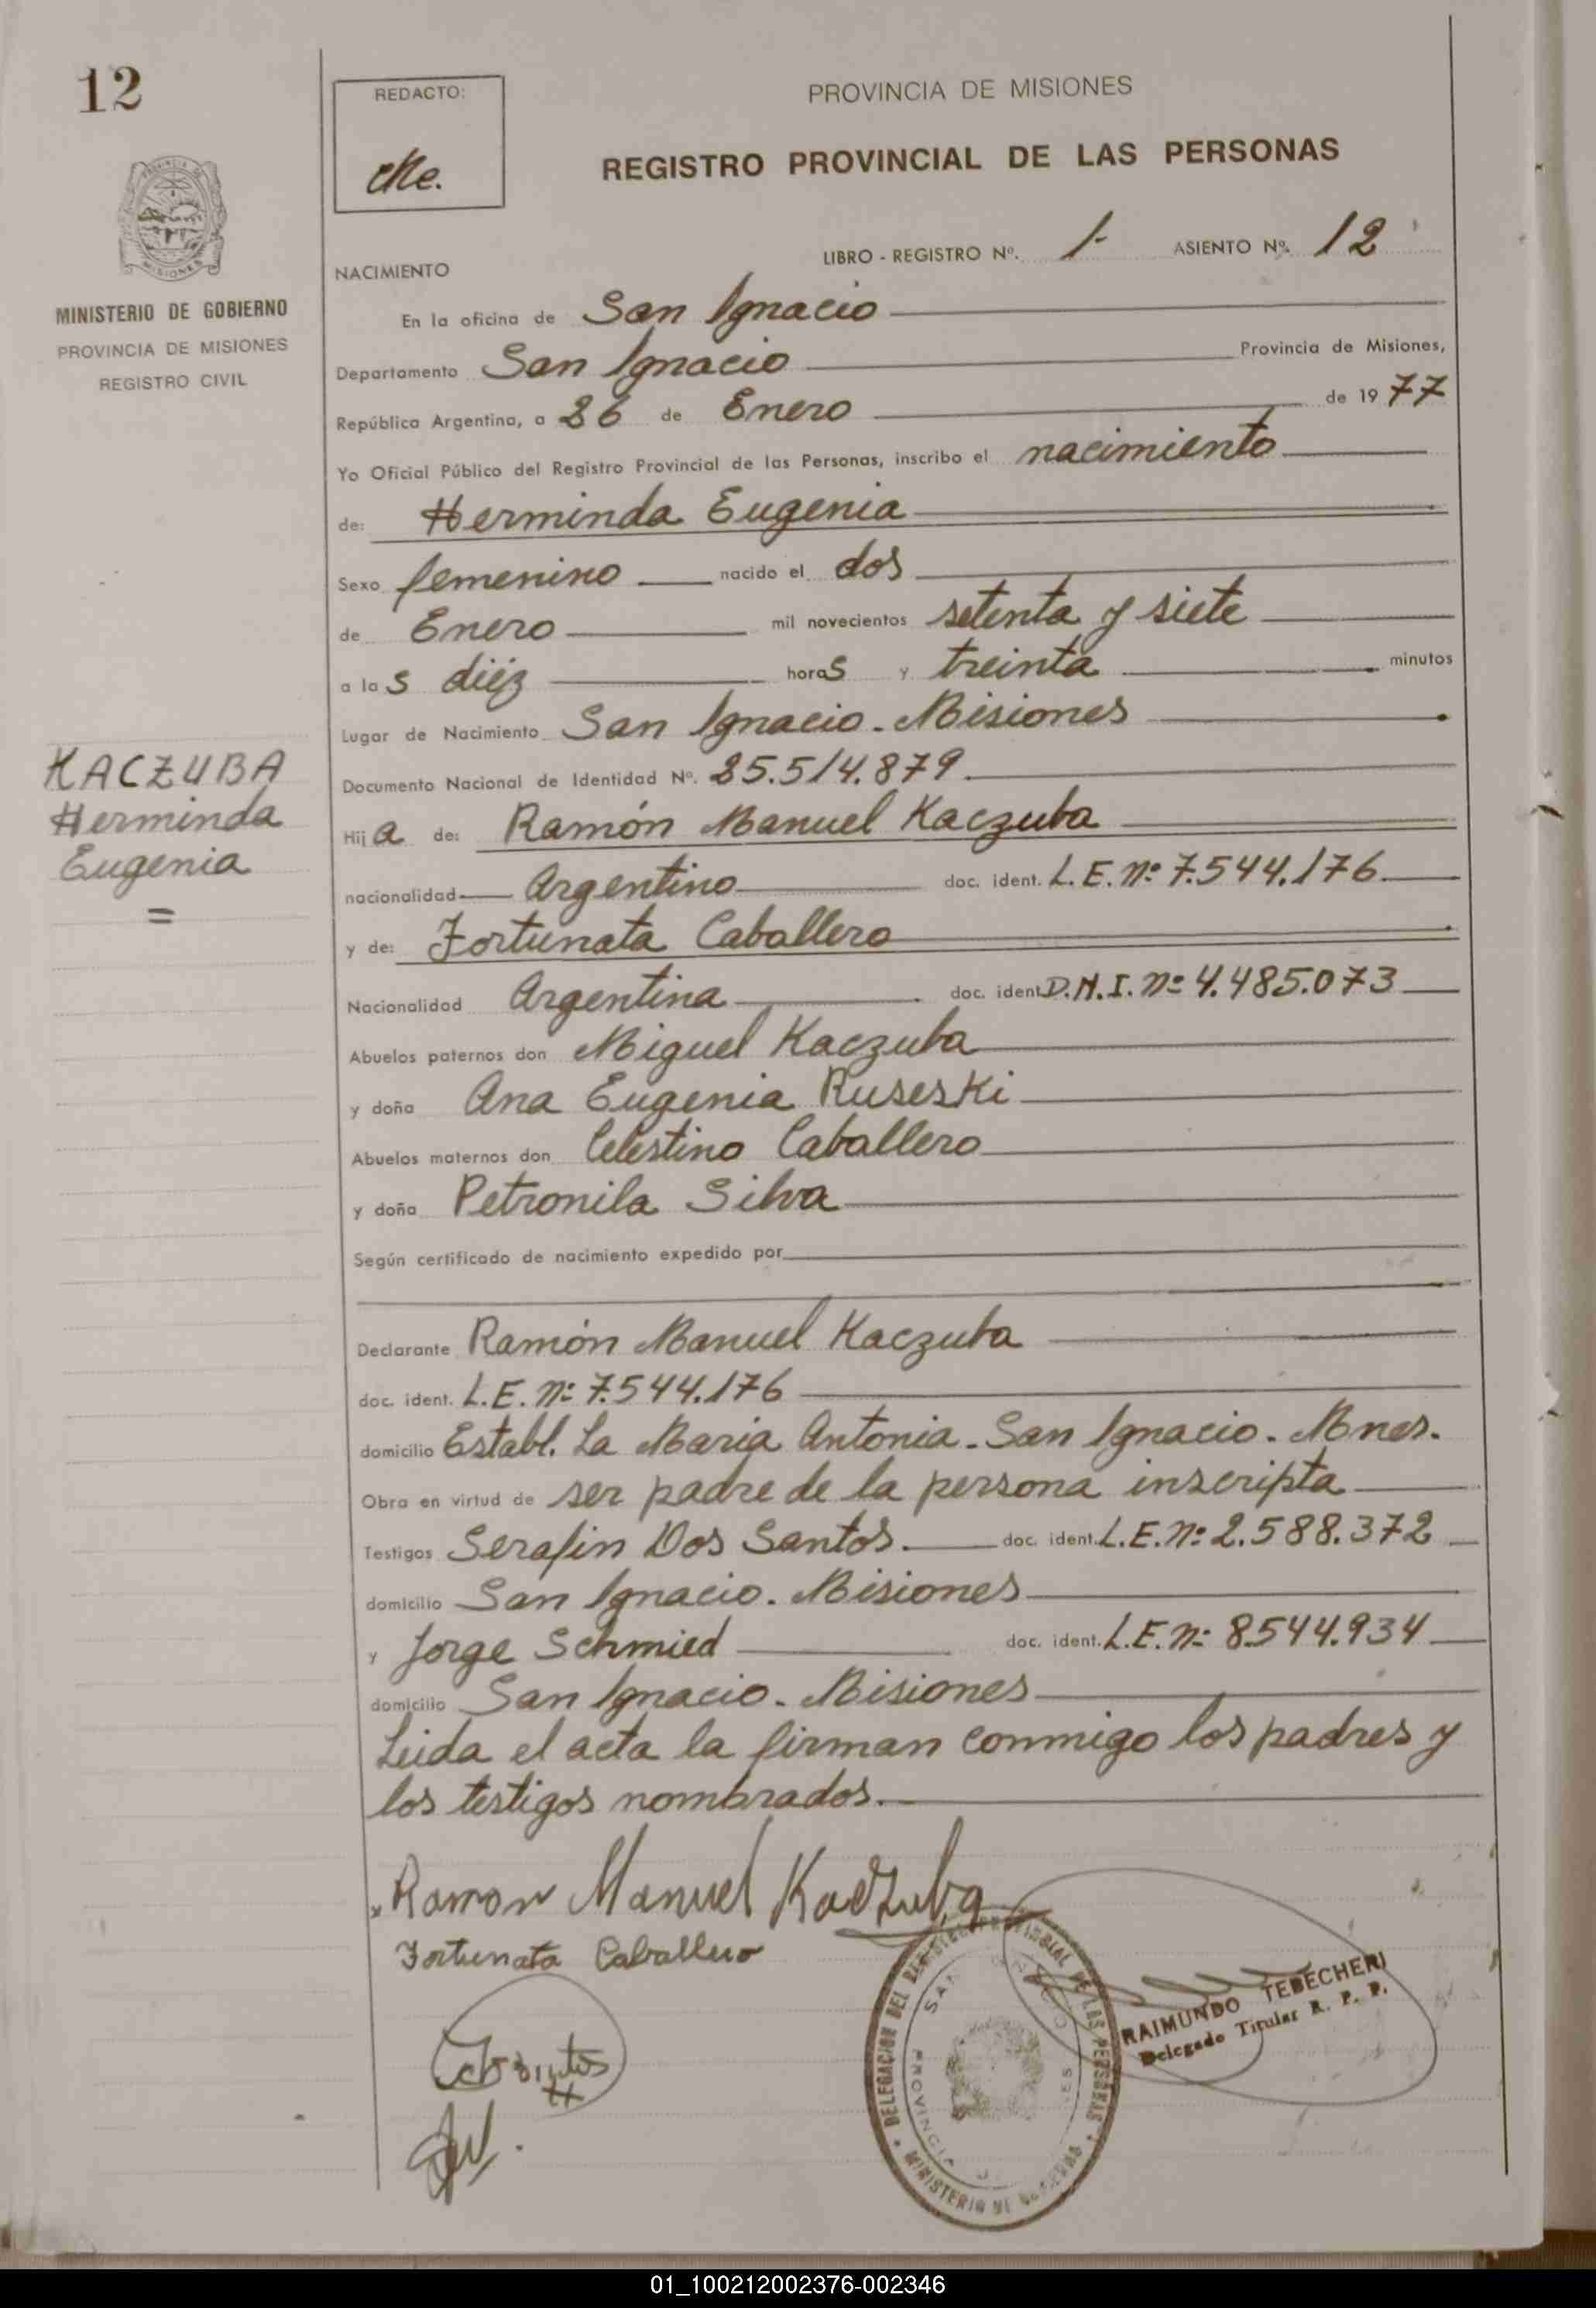 12
REDACTO:
Me.
PROVINCIA DE MISIONES
REGISTRO PROVINCIAL DE LAS PERSONAS
MISIONES
MINISTERIO DE GOBIERNO
PROVINCIA DE MISIONES
REGISTRO CIVIL
LIBRO - REGISTRO Nº. 1- ASIENTO Nº. 12
NACIMIENTO
En la oficina de San Ignacio
Departamento San Ignacio Provincia de Misiones,
República Argentina, a 26 de Enero de 1977
Yo Oficial Público del Registro Provincial de las Personas, inscribo el nacimiento
de: Herminda Eugenia
Sexo femenino nacido el dos
de Enero mil novecientos setenta y siete
a las diéz horas y treinta minutos
Lugar de Nacimiento San Ignacio - Misiones
KACZUBA
Herminda
Eugenia
Documento Nacional de Identidad Nº. 25.514.879.
Hija de: Ramón Manuel Kaczuba
nacionalidad Argentino doc. ident. L.E. Nº 7.544.176.
y de: Fortunata Caballero
Nacionalidad Argentina doc. ident. D.N.I. Nº 4.485.073
Abuelos paternos don Miguel Kaczuba
y doña Ana Eugenia Ruseski
Abuelos maternos don Celestino Caballero
y doña Petronila Silva
Según certificado de nacimiento expedido por
Declarante Ramón Manuel Kaczuba
doc. ident. L.E. Nº 7.544.176
domicilio Establ. La Maria Antonia - San Ignacio - Mnes.
Obra en virtud de ser padre de la persona inscripta
Testigos Serafin Dos Santos. doc. ident. L.E. Nº 2.588.372
domicilio San Ignacio. Misiones
y Jorge Schmied doc. ident. L.E. Nº 8.544.934
domicilio San Ignacio - Misiones
Leida el acta la firman conmigo los padres y
los testigos nombrados.
Ramon Manuel Kaczuba
Fortunata Caballero
DELEGACION DEL REGISTRO PROVINCIAL DE LAS PERSONAS
MINISTERIO DE GOBIERNO
RAIMUNDO TEBECHERI
Delegado Titular R. P. P.
01_100212002376-002346